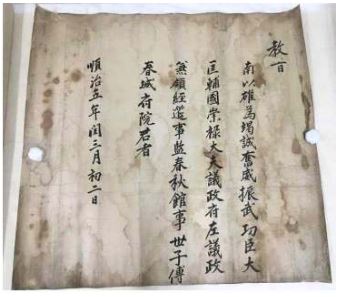 教旨
南以雄為竭誠奮威振武功臣大
匡輔國崇祿大夫議政府左議政
兼領經筵事監春秋館事 世子傅
春城府院君者
順治五年閏三月初二日